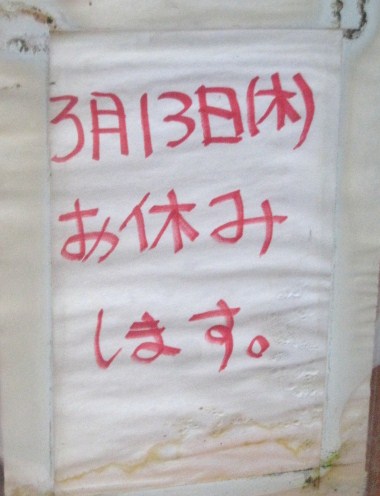 3月13日(木)
お休み
します。